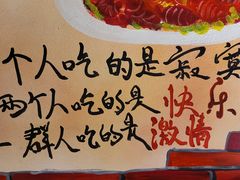 个人吃的是寂寞
两个人吃的是快乐
一群人吃的是激情